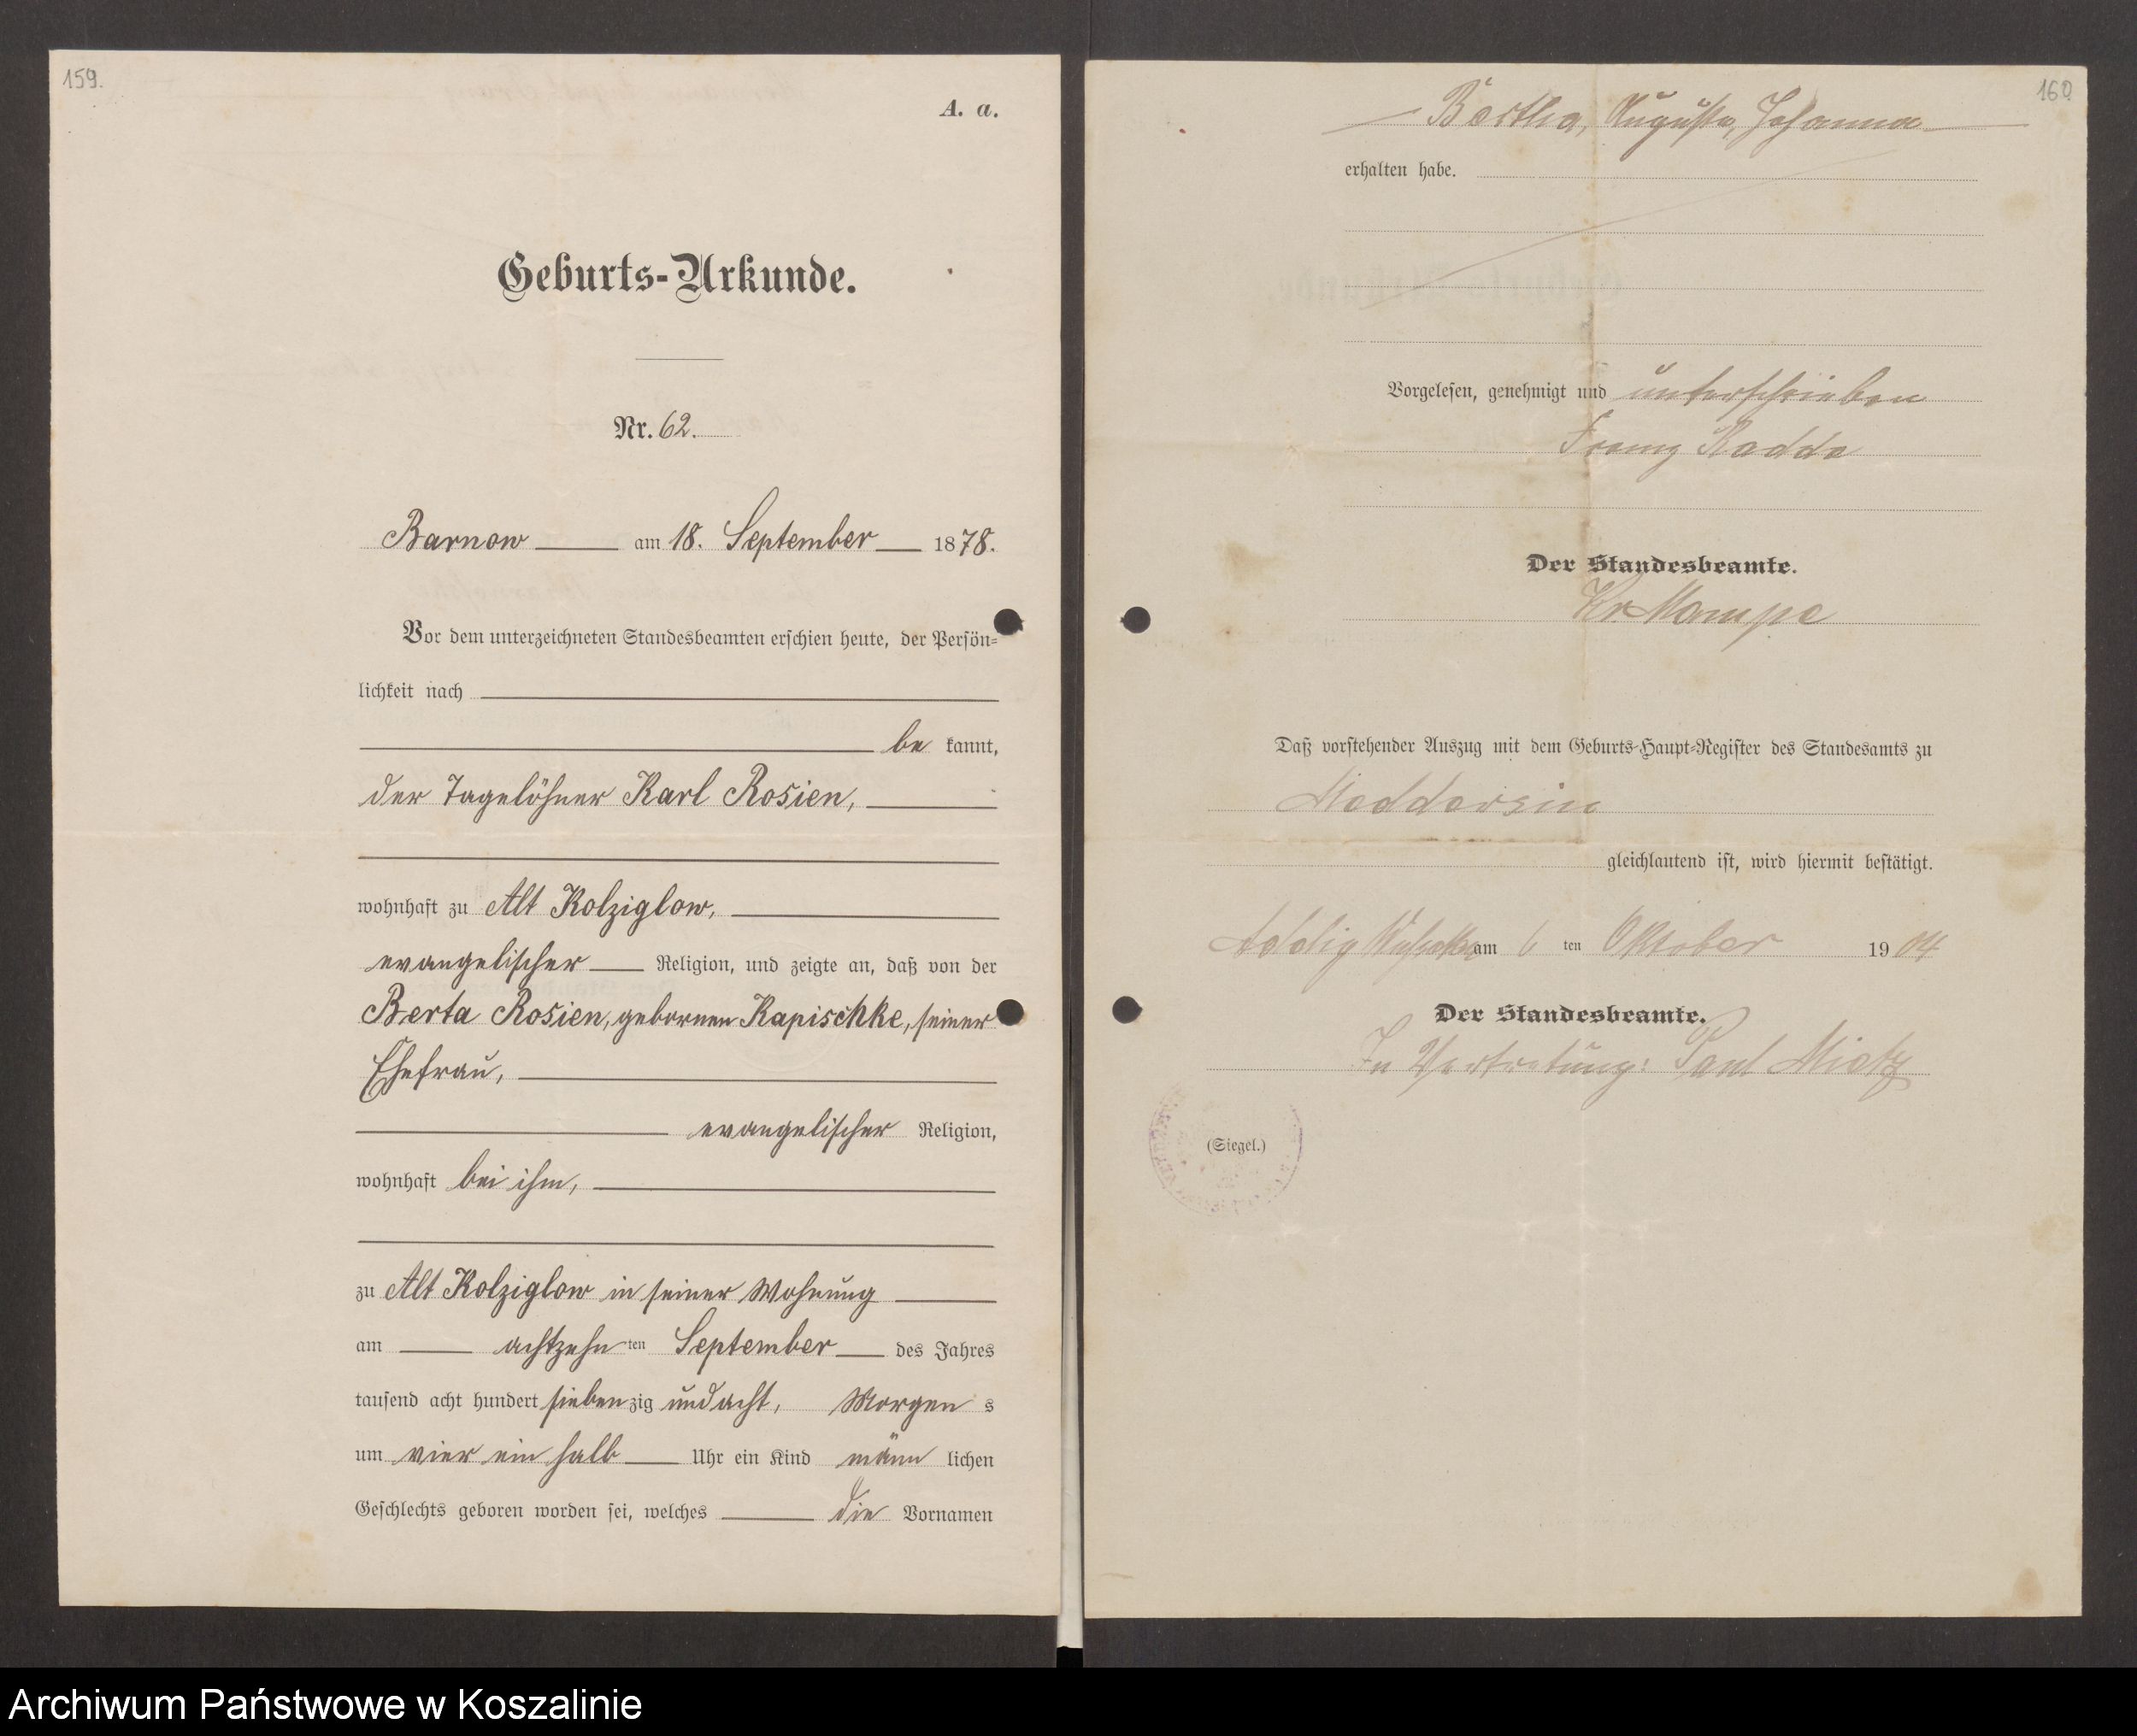 159.
A. a.
Geburts-Urkunde.
Nr. 62.
Barnow am 18. September 1878.
Vor dem unterzeichneten Standesbeamten erschien heute, der Persön-
lichkeit nach
be kannt,
der Tagelöhner Karl Rosien,
wohnhaft zu Alt Kolziglow,
evangelischer Religion, und zeigte an, daß von der
Berta Rosien, gebornen Kapischke, seiner
Ehefrau,
evangelischer Religion,
wohnhaft bei ihm,
zu Alt Kolziglow in seiner Wohnung
am achtzehn ten September des Jahres
tausend acht hundert sieben zig und acht, Morgen s
um vier ein halb Uhr ein Kind männ lichen
Geschlechts geboren worden sei, welches die Vornamen
160
Bertha, Auguste, Johanna
erhalten habe.
Vorgelesen, genehmigt und unterschrieben
Franz Radde
Der Standesbeamte.
Kr Mampe
Daß vorstehender Auszug mit dem Geburts-Haupt-Register des Standesamts zu
Moddersin
gleichlautend ist, wird hiermit bestätigt.
am 6 ten Oktober 1904
Der Standesbeamte.
In Vertretung: Paul Mietz
(Siegel.)
Archiwum Państwowe w Koszalinie